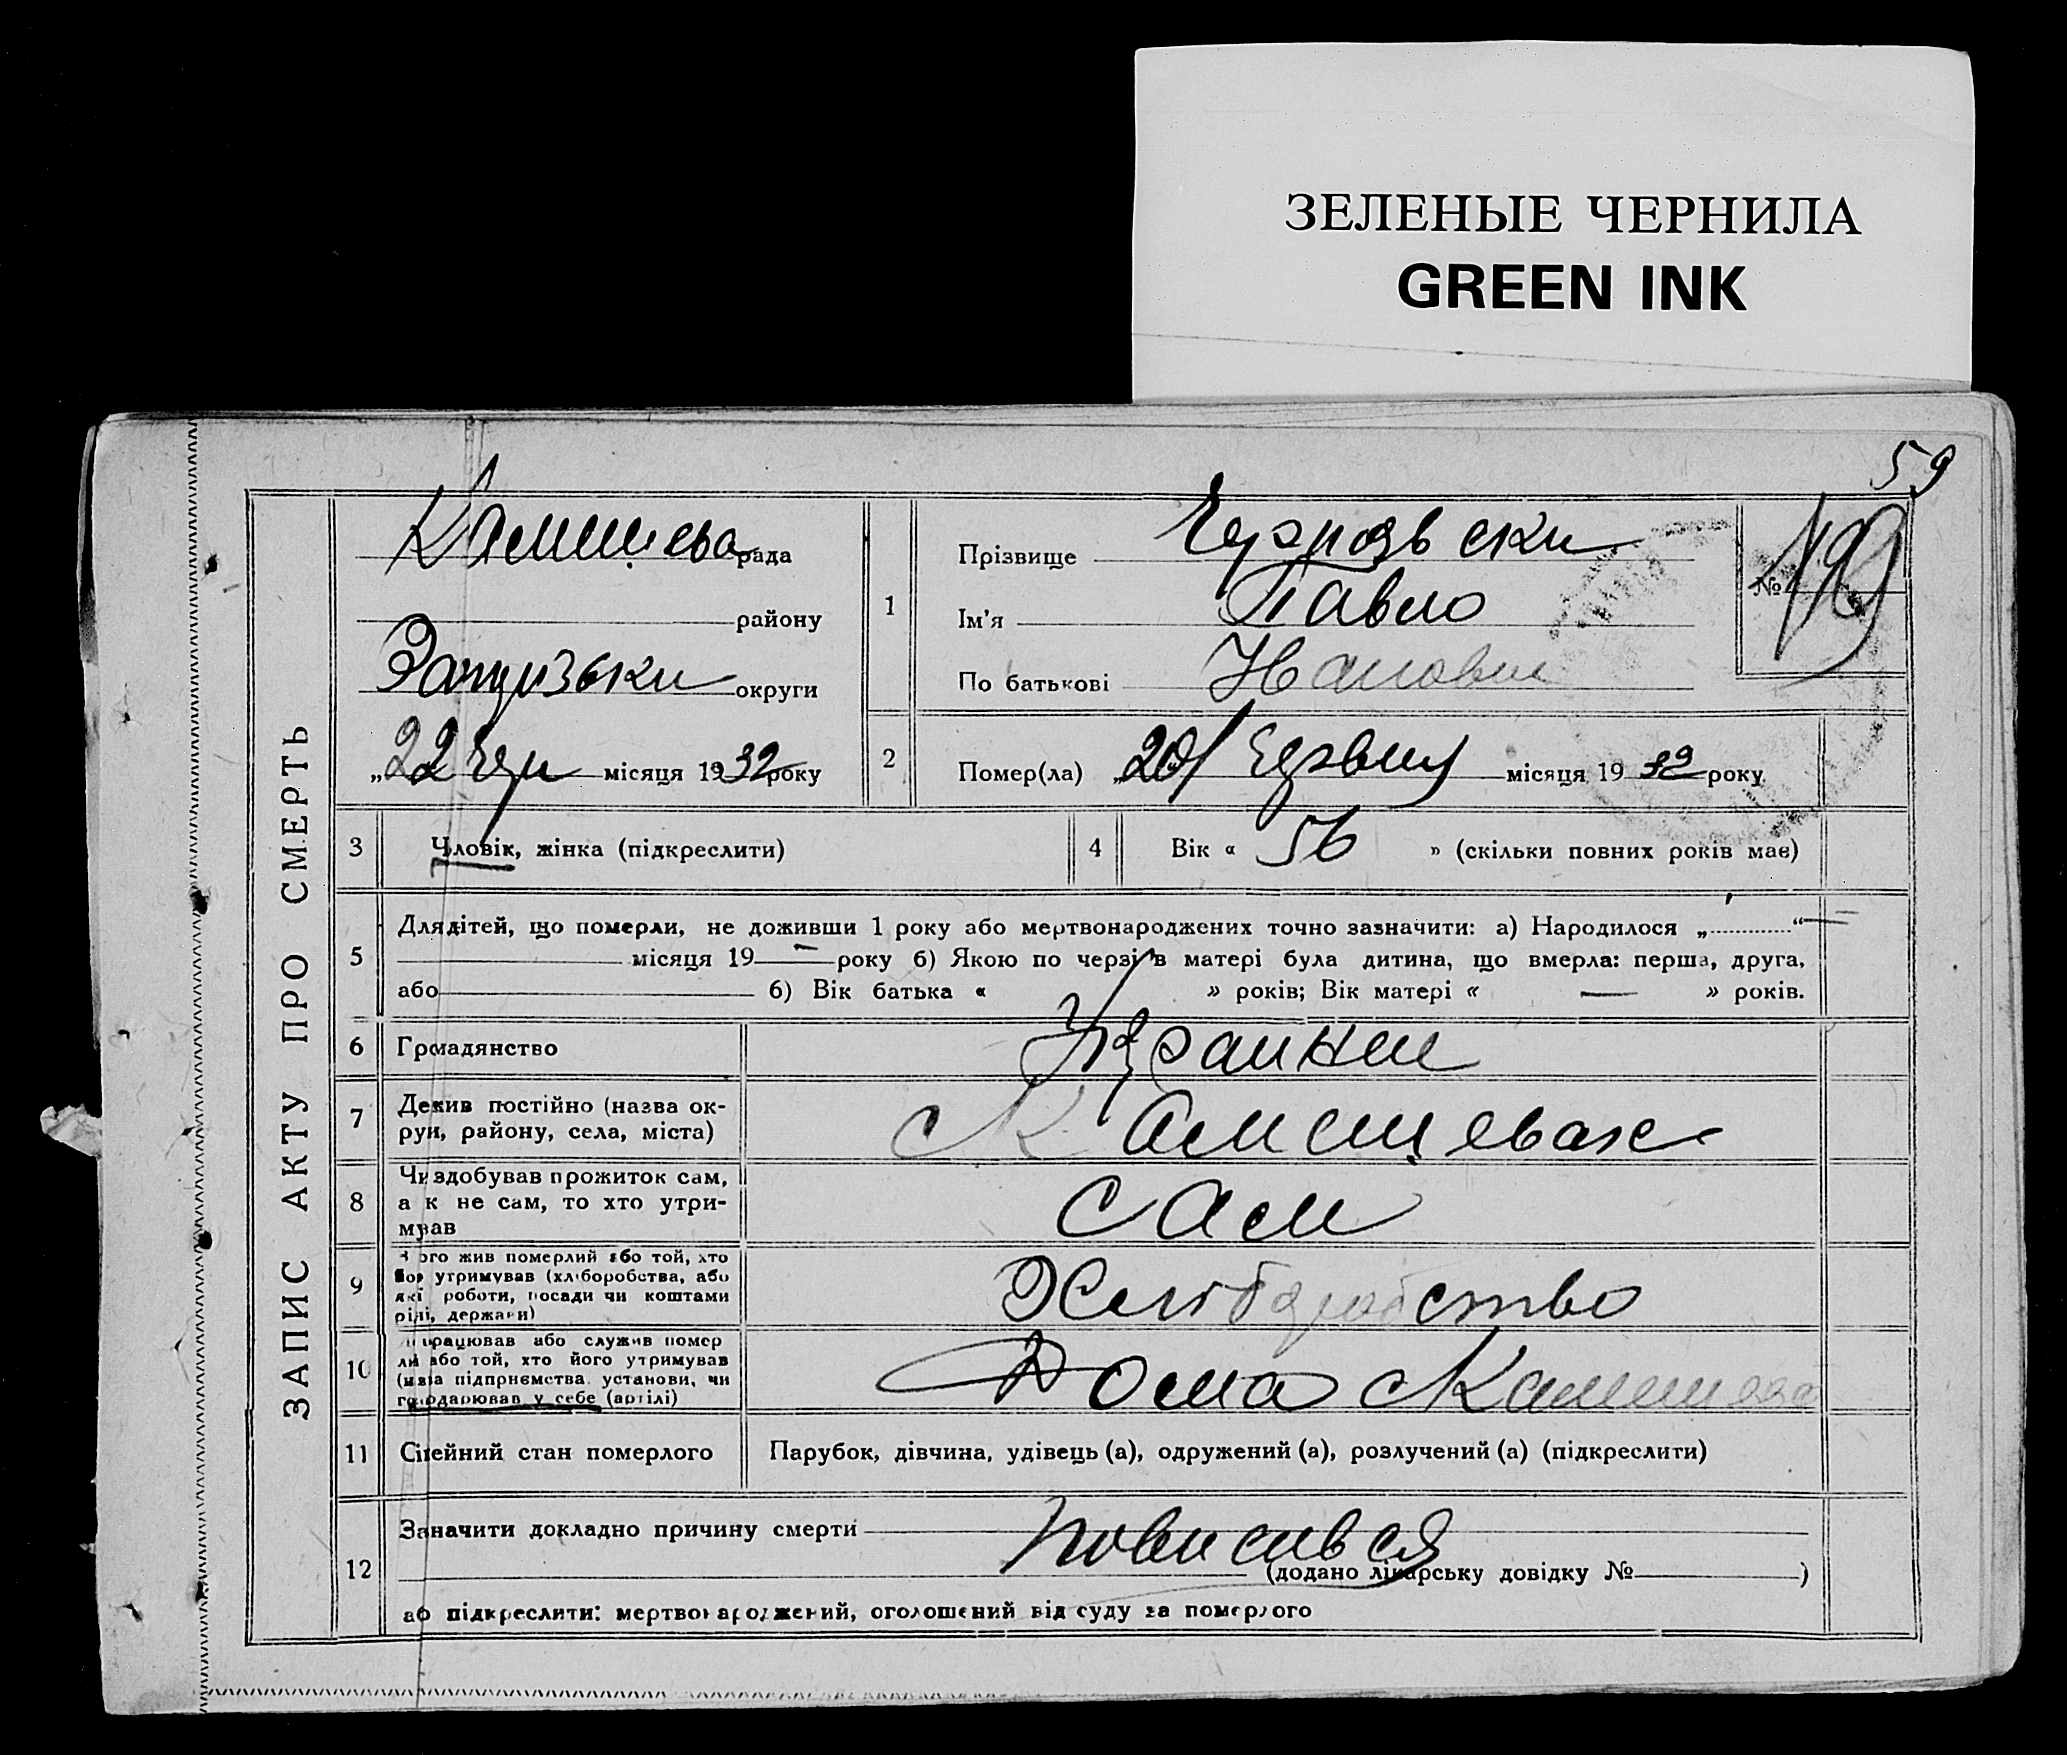 ЗЕЛЕНЫЕ ЧЕРНИЛА
GREEN INK
59
ЗАПИС АКТУ ПРО СМЕРТЬ
рада
району
округи
„22 чер місяця 1932 року
1
Прізвище
Ім'я Павло
По батькові
№ 19
2
Помер(ла) „20 червня місяця 1932 року
3 Чловік, жінка (підкреслити)
4 Вік « 56 » (скільки повних років має)
5
Для дітей, що померли, не доживши 1 року або мертвонароджених точно зазначити: а) Народилося „ “ —
місяця 19 — року б) Якою по черзі в матері була дитина, що вмерла: перша, друга,
або б) Вік батька « » років; Вік матері « — » років.
6 Громадянство
7 Де жив постійно (назва ок-
руи, району, села, міста)
с
8 Чи здобував прожиток сам,
а к не сам, то хто утри-
мував
сам
9 З ого жив померлий або той, хто
його утримував (хліборобства, або
які роботи, посади чи коштами
рідні, держави)
Хліборобство
10 працював або служив помер
ли або той, хто його утримував
(назва підприємства, установи, чи
господарював у себе (артілі)
Дома
11 Сімейний стан померлого
Парубок, дівчина, удівець (а), одружений (а), розлучений (а) (підкреслити)
12
Зазначити докладно причину смерти повисився
(додано лікарську довідку № )
або підкреслити: мертвонароджений, оголошений від суду за померлого